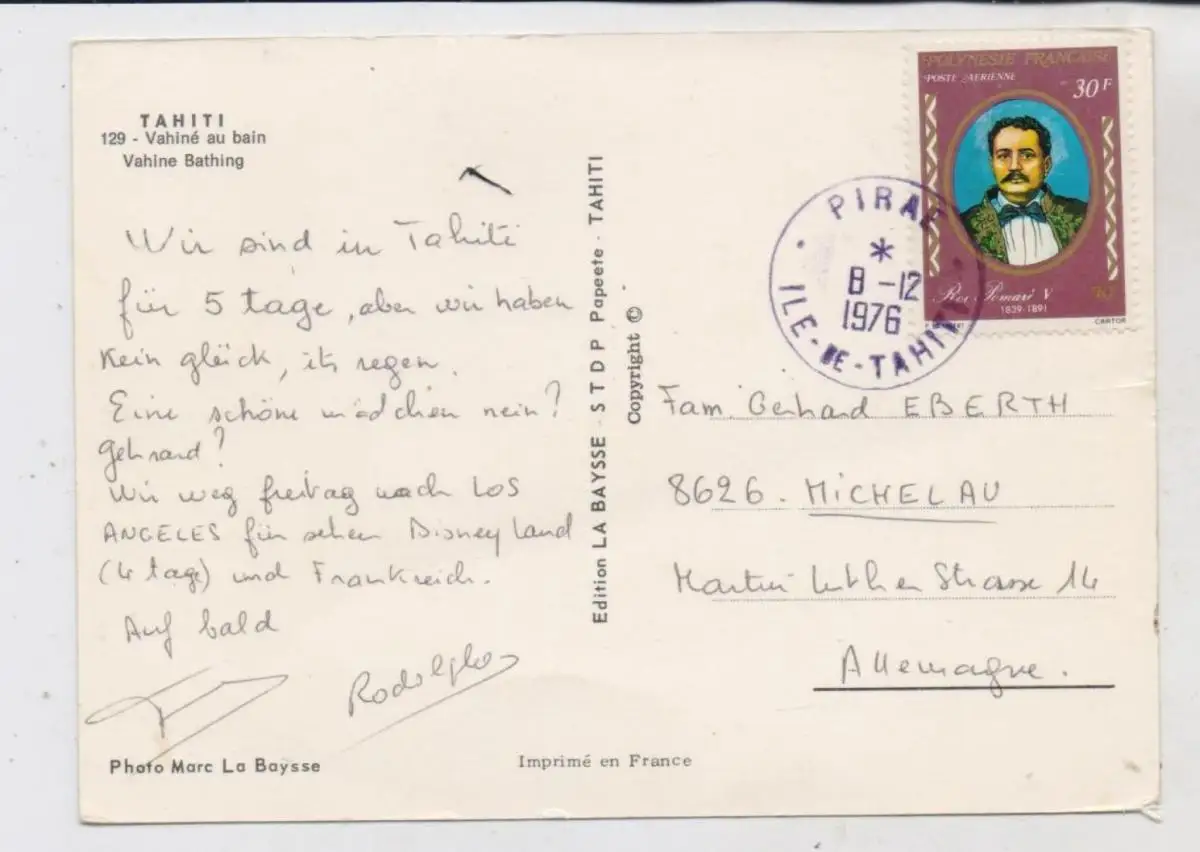 TAHITI
129 - Vahiné au bain
Vahine Bathing
Wir sind in Tahiti
für 5 tage, aber wir haben
Kein glück, its regen.
Eine schöne mädchen nein?
Gehrard?
Wir weg freitag nach LOS
ANGELES für sehen Disney Land
(4 tage) und Frankreich.
Auf bald
Rodolpho
Photo Marc La Baysse
Imprimé en France
Edition LA BAYSSE - STDP Papeete - TAHITI
Copyright ©
POLYNESIE FRANÇAISE
POSTE AERIENNE
30 F
Roi Pomaré V
1839-1891
CARTOR
PIRAE
*
8-12
1976
ILE-DE-TAHITI
Fam. Gerhard EBERTH
8626. MiCHELAU
Martin Luther Strasse 14
Allemagne.